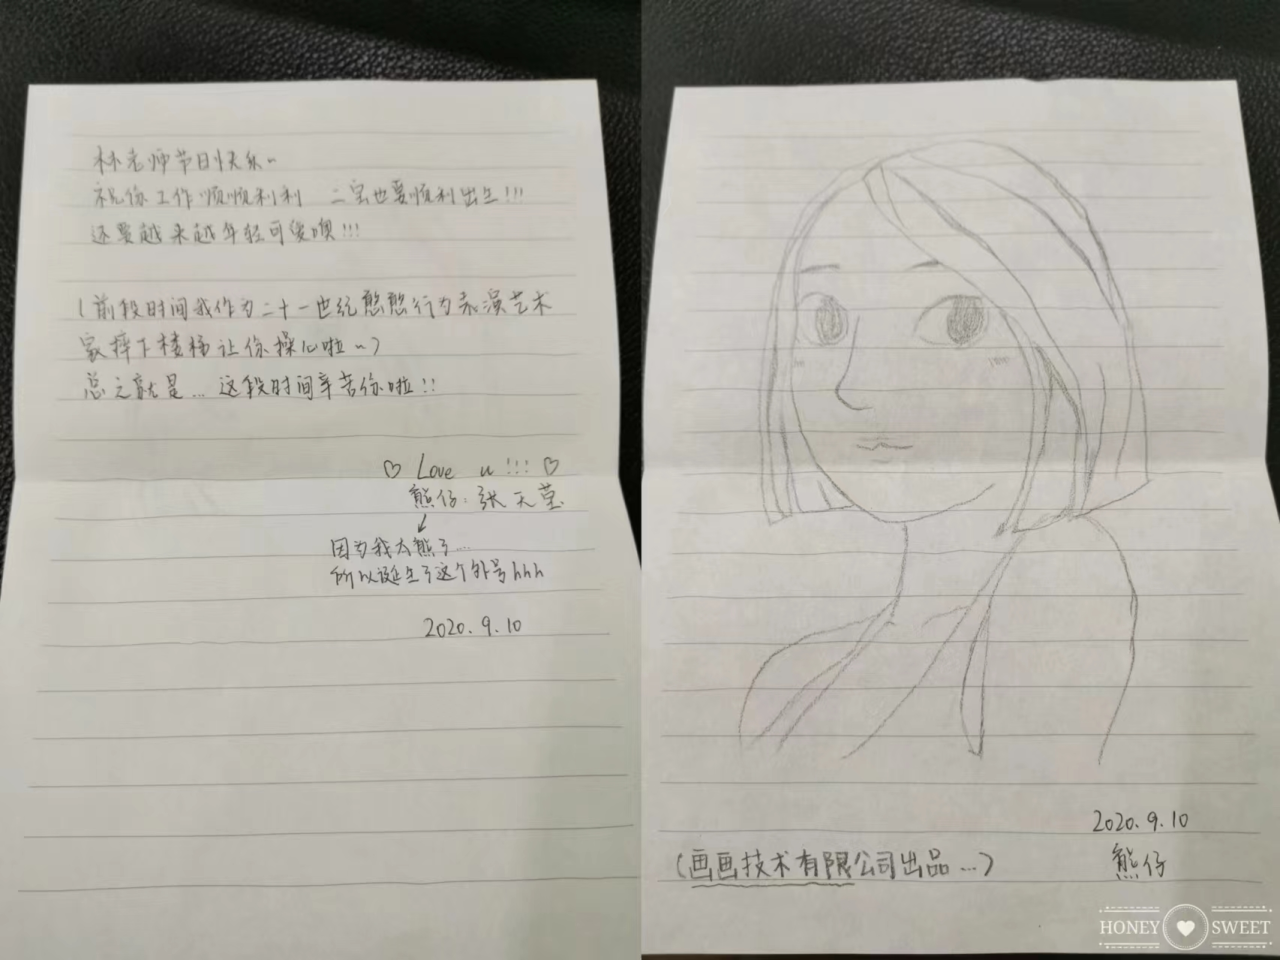 林老师节日快乐~
祝你工作顺顺利利 二宝也要顺利出生!!!
还要越来越年轻可爱噢!!!
(前段时间我作为二十一世纪憨憨行为表演艺术
家摔下楼梯让你操心啦~)
总之就是...这段时间辛苦你啦!!
♡ Love u!!! ♡
熊仔:张天莹
因为我太熊了...
所以诞生了这个外号hhh
2020.9.10
2020.9.10
(画画技术有限公司出品...)
熊仔
HONEY SWEET